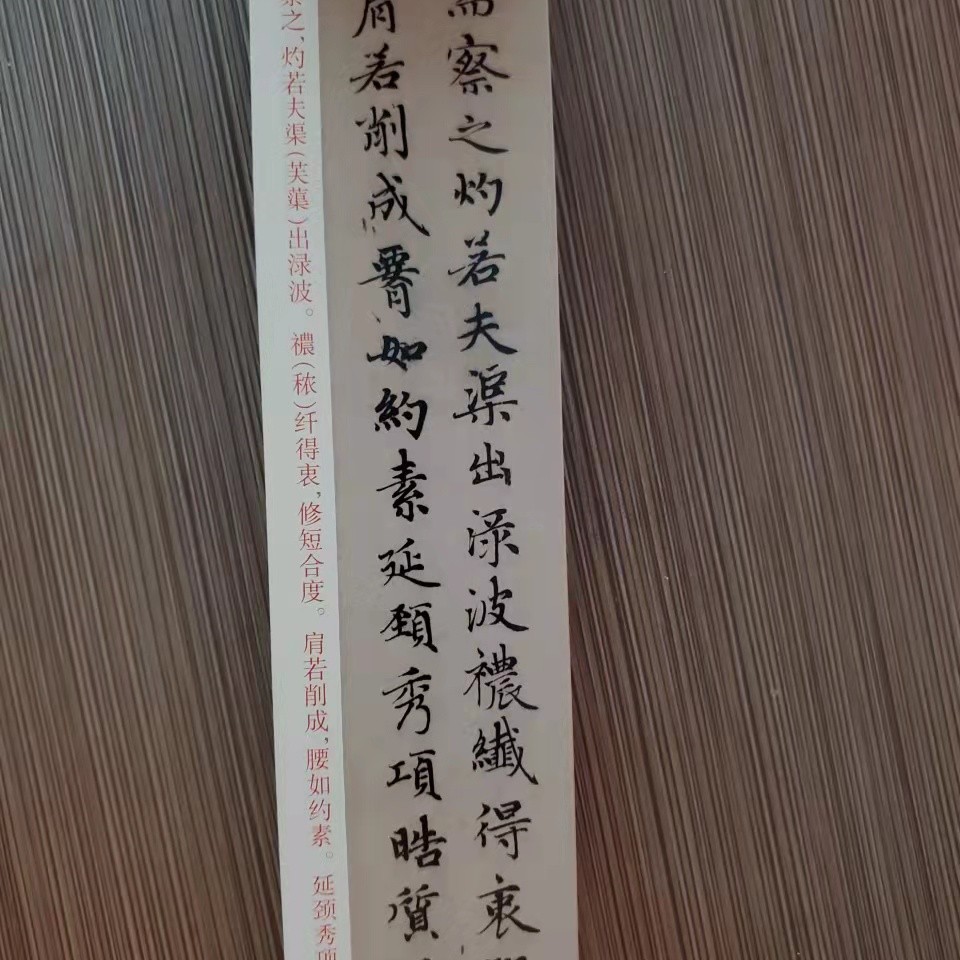 察之灼若夫渠出渌波襛纖得衷
肩若削成𦝫如約素延頸秀項皓質
之，灼若夫渠（芙蕖）出渌波。襛（秾）纤得衷，修短合度。肩若削成，腰如约素。延颈秀项